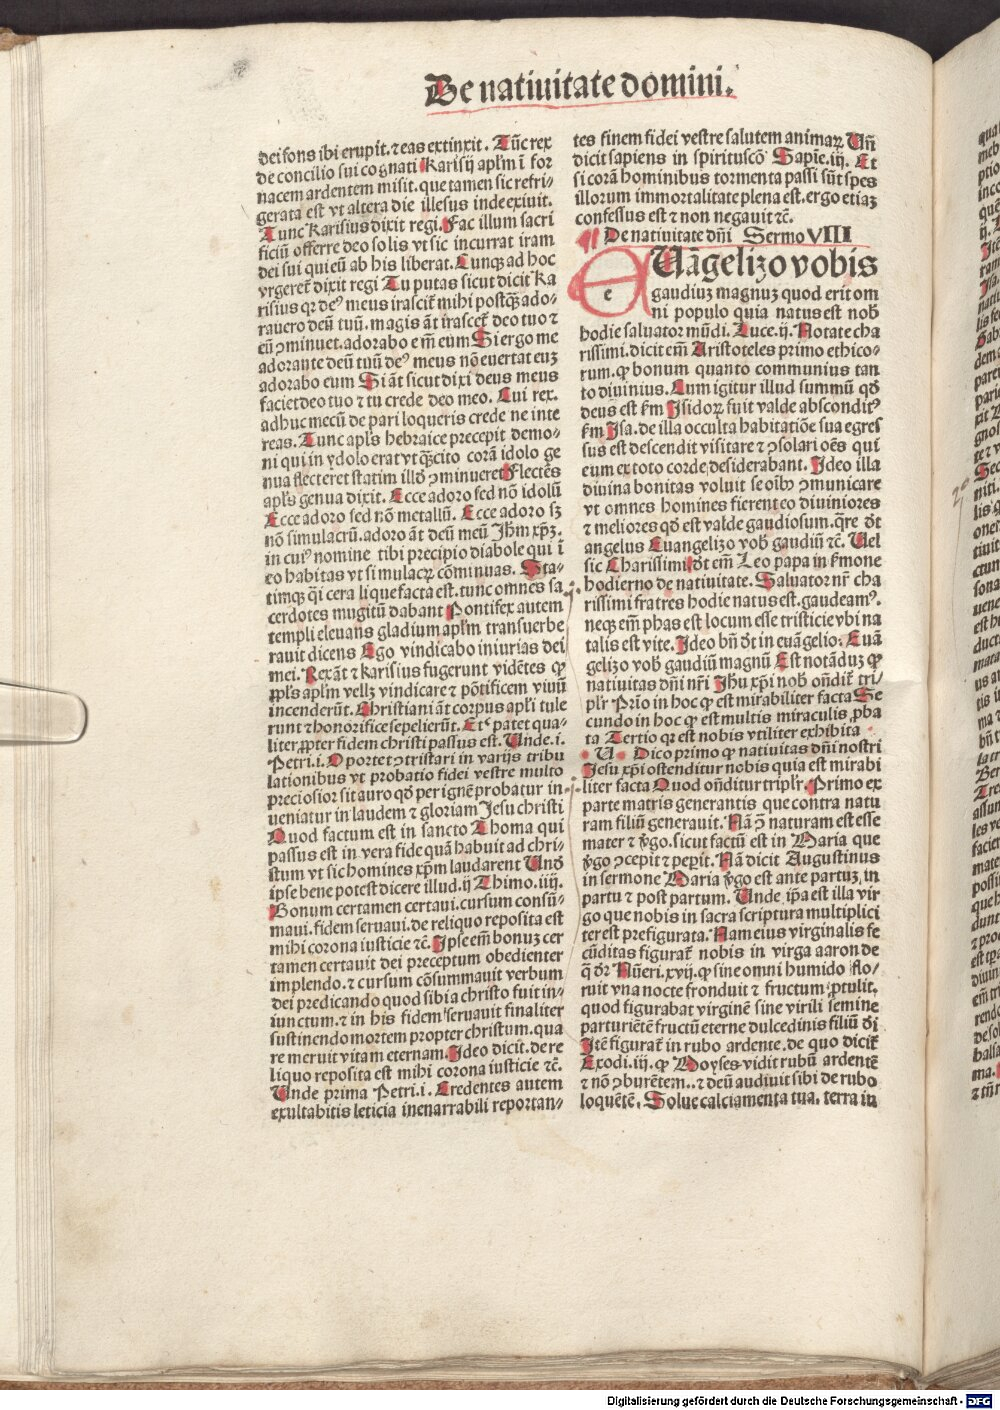 De natiuitate domini.
dei fons ibi erupit. ⁊ eas extinxit. Tūc rex
de concilio sui cognati Karisij apłm ī for
nacem ardentem misit. que tamen sic refri-
gerata est vt altera die illesus inde exiuit.
Tunc Karisius dixit regi. Fac illum sacri
ficiū offerre deo solis vt sic incurrat iram
dei sui qui eū ab his liberat. Cunqꝫ ad hoc
vrgeret̄ dixit regi Tu putas sicut dicit Ka
risius qꝛ deꝰ meus irascit̄ mihi postqꝫ̄ ado-
rauero deū tuū. magis āt irascet̄ deo tuo ⁊
eū ꝯminuet. adorabo em̄ eum Si ergo me
adorante deū tuū deꝰ meus nō euertat euꝫ
adorabo eum Si āt sicut dixi deus meus
faciet deo tuo ⁊ tu crede deo meo. Cui rex.
adhuc mecū de pari loqueris crede ne inte
reas. Tunc apłs hebraice precepit demo-
ni qui in ydolo erat vt qꝫ̄cito corā idolo ge
nua flecteret statim illd̄ ꝯminueret Flectēs
apłs genua dixit. Ecce adoro sed nō idolū
Ecce adoro sed nō metallū. Ecce adoro sꝫ
nō simulacrū. adoro āt deū meū Jhm̄ xp̄ꝫ.
in cuiꝰ nomine tibi precipio diabole qui ī
eo habitas vt simulacꝝ cōminuas. Sta-
timqꝫ q̄i cera liquefacta est. tunc omnes sa
cerdotes mugitū dabant Pontifex autem
templi eleuans gladium apłm transuerbe
rauit dicens Ego vindicabo iniurias dei
mei. Rex āt ⁊ Karisius fugerunt vidētes ꝙ
ppl̄s apłm vellꝫ vindicare ⁊ pōtificem viuū
incenderūt. Christiani āt corpus apłi tule
runt ⁊ honorifice sepelierūt. Et sꝰ patet qua-
liter ꝓpter fidem christi passus est. Unde. i.
Petri. i. Oportet ꝯtristari in varijs tribu
lationibus vt probatio fidei vestre multo
preciosior sit auro qd̄ per ignē probatur in-
ueniatur in laudem ⁊ gloriam Jesu christi
Quod factum est in sancto Thoma qui
passus est in vera fide quā habuit ad chri-
stum vt sic homines xp̄m laudarent Und̄
ipse bene potest dicere illud. ij Thimo. iiij.
Bonum certamen certaui. cursum consū-
maui. fidem seruaui. de reliquo reposita est
mihi corona iusticie ⁊c̄. Ipse em̄ bonuꝫ cer
tamen certauit dei preceptum obedienter
implendo. ⁊ cursum cōsummauit verbum
dei predicando quod sibi a christo fuit in-
iunctum. ⁊ in his fidem seruauit finaliter
sustinendo mortem propter christum. qua
re meruit vitam eternam. Ideo dicit. de re
liquo reposita est mihi corona iusticie ⁊c̄.
Unde prima Petri. i. Credentes autem
exultabitis leticia inenarrabili reportan-
tes finem fidei vestre salutem animaꝝ Un̄
dicit sapiens in spiritu scō Sapiē. iij. Et
si corā hominibus tormenta passi sūt spes
illorum immortalitate plena est. ergo etiaꝫ
confessus est ⁊ non negauit ⁊c̄.
De natiuitate dn̄i Sermo VIII
EUāgelizo vobis
gaudiuꝫ magnuꝫ quod erit om
ni populo quia natus est nob̄
hodie saluator mūdi. Luce. ij. Notate cha
rissimi. dicit em̄ Aristoteles primo ethico-
rum. ꝙ bonum quanto communius tan
to diuinius. Cum igitur illud summū qd̄
deus est s̄m Isidoꝝ fuit valde absconditꝰ
s̄m Isa. de illa occulta habitatiōe sua egres
sus est descendit visitare ⁊ ꝯsolari oēs qui
eum ex toto corde desiderabant. Ideo illa
diuina bonitas voluit se oib̄ꝫ ꝯmunicare
vt omnes homines fierent eo diuiniores
⁊ meliores qd̄ est valde gaudiosum. q̄re dt̄
angelus Euangelizo vob̄ gaudiū ⁊c̄. Uel
sic Charissimi. dt̄ em̄ Leo papa in s̄mone
hodierno de natiuitate. Saluator nr̄ cha
rissimi fratres hodie natus est. gaudeamꝰ.
neqꝫ em̄ phas est locum esse tristicie vbi na
talis est vite. Ideo bn̄ dt̄ in euāgelio: Euā
gelizo vob̄ gaudiū magnū Est notāduꝫ ꝙ
natiuitas dn̄i nr̄i Jhū xp̄i nob̄ on̄dit̄ tri-
plr̄ Prio in hoc ꝙ est mirabiliter facta Se
cundo in hoc ꝙ est multis miraculis ꝓba
ta Tertio qꝛ est nobis vtiliter exhibita
U Dico primo ꝙ natiuitas dn̄i nostri
Jesu xp̄i ostenditur nobis quia est mirabi
liter facta Quod on̄ditur triplr̄. Primo ex
parte matris generantis que contra natu
ram filiū generauit. Nā ꝯ̄ naturam est esse
mater ⁊ v̄go. sicut factū est in Maria que
v̄go ꝯcepit ⁊ peꝑit. Nā dicit Augustinus
in sermone Maria v̄go est ante partuꝫ, in
partu ⁊ post partum. Unde ip̄a est illa vir
go que nobis in sacra scriptura multiplici
ter est prefigurata. Nam eius virginalis fe
cūditas figurat̄ nobis in virga aaron de
q̄ dr̄ Nūeri. xvij. ꝙ sine omni humido flo-
ruit vna nocte fronduit ⁊ fructum ꝓtulit.
quod figurabat virginē sine virili semine
parturiētē fructū eterne dulcedinis filiū dī
Itē figurat̄ in rubo ardente. de quo dicit̄
Exodi. iij. ꝙ Moyses vidit rubū ardentē
⁊ nō ꝯburētem.. ⁊ deū audiuit sibi de rubo
loquētē. Solue calciamenta tua. terra in
Digitalisierung gefördert durch die Deutsche Forschungsgemeinschaft - DFG